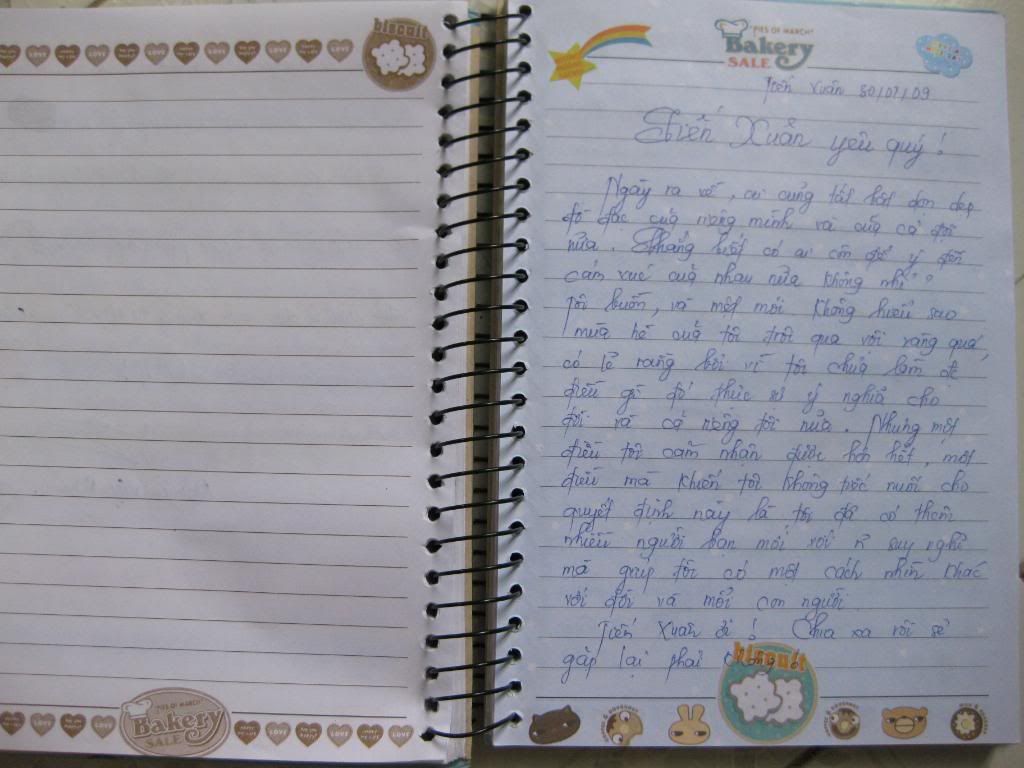 biscuit
PIES OF MARCH
Bakery
SALE
PIES OF MARCH
Bakery
SALE
Tiến Xuân 30/07/09
Tiến Xuân yêu quý!
Ngày ra về, ai cũng tất bật dọn dẹp
đồ đạc của riêng mình và của cả đội
nữa. Chẳng biết có ai còn để ý đến
cảm xúc của nhau nữa không nhỉ?
Tôi buồn, và mệt mỏi không hiểu sao
mùa hè của tôi trôi qua vội vàng quá,
có lẻ rằng bởi vì tôi chưa làm đc
điều gì đó thực sự ý nghĩa cho
đời và cả riêng tôi nữa. Nhưng một
điều tôi cảm nhận được hơn hết, một
điều mà khiến tôi không tiếc nuối cho
quyết định này là tôi đã có thêm
nhiều người bạn mới với n suy nghĩ
mà giúp tôi có một cách nhìn khác
với đời và mỗi con người
Tiến Xuân ơi! Chia xa rồi sẻ
gặp lại phải không
biscuit
PIES OF MARCH
Bakery
SALE
LOVE
LOVE